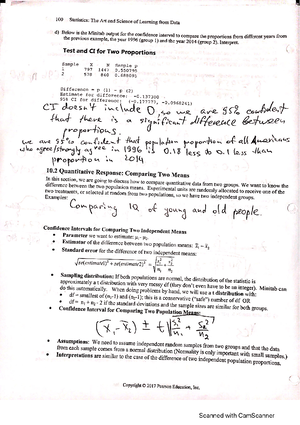 100 Statistics: The Art and Science of Learning from Data
d) Below is the Minitab output for the confidence interval to compare the proportions from different years from
the previous example, the year 1996 (group 1) and the year 2014 (group 2). Interpret.
Test and CI for Two Proportions
Sample X N Sample p
Difference = p (1) - p (2)
Estimate for difference: -0.137300
95% CI for difference: (-0.177775, -0.0968261)
CI doesn't include 0, so we are 95% confident
that there is a significant difference between
proportions.
we are 95% confident that population proportion of all Americans
who agree/strongly agree in 1996 is 0.18 less to 0.1 less than
proportion in 2014
10.2 Quantitative Response: Comparing Two Means
In this section, we are going to discuss how to compare quantitative data from two groups. We want to know the
difference between the two population means. Experimental units are randomly allocated to receive one of the
two treatments, or selected at random from two populations, so we have two independent groups.
Examples:
Comparing IQ of young and old people.
Confidence Intervals for Comparing Two Independent Means
• Parameter we want to estimate: μ₁-μ₂
• Estimator of the difference between two population means: x̄₁ - x̄₂
• Standard error for the difference of two independent means:
• Sampling distribution: If both populations are normal, the distribution of the statistic is
approximately a t distribution with very messy df (they don't even have to be an integer). Minitab can
do this automatically. When doing problems by hand, we will use a t distribution with:
• df = smaller of (n₁-1) and (n₂-1); this is a conservative ("safe") number of df OR
• df = n₁ + n₂ - 2 if the standard deviations and the sample sizes are similar for both groups.
• Confidence Interval for Comparing Two Population Means:
(x̄₁ - x̄₂) ± t √(s₁²/n₁ + s₂²/n₂)
• Assumptions: We need to assume independent random samples from two groups and that the data
from each sample comes from a normal distribution (Normality is only important with small samples.)
• Interpretations are similar to the case of the difference of two independent population proportions.
Copyright © 2017 Pearson Education, Inc.
Scanned with CamScanner